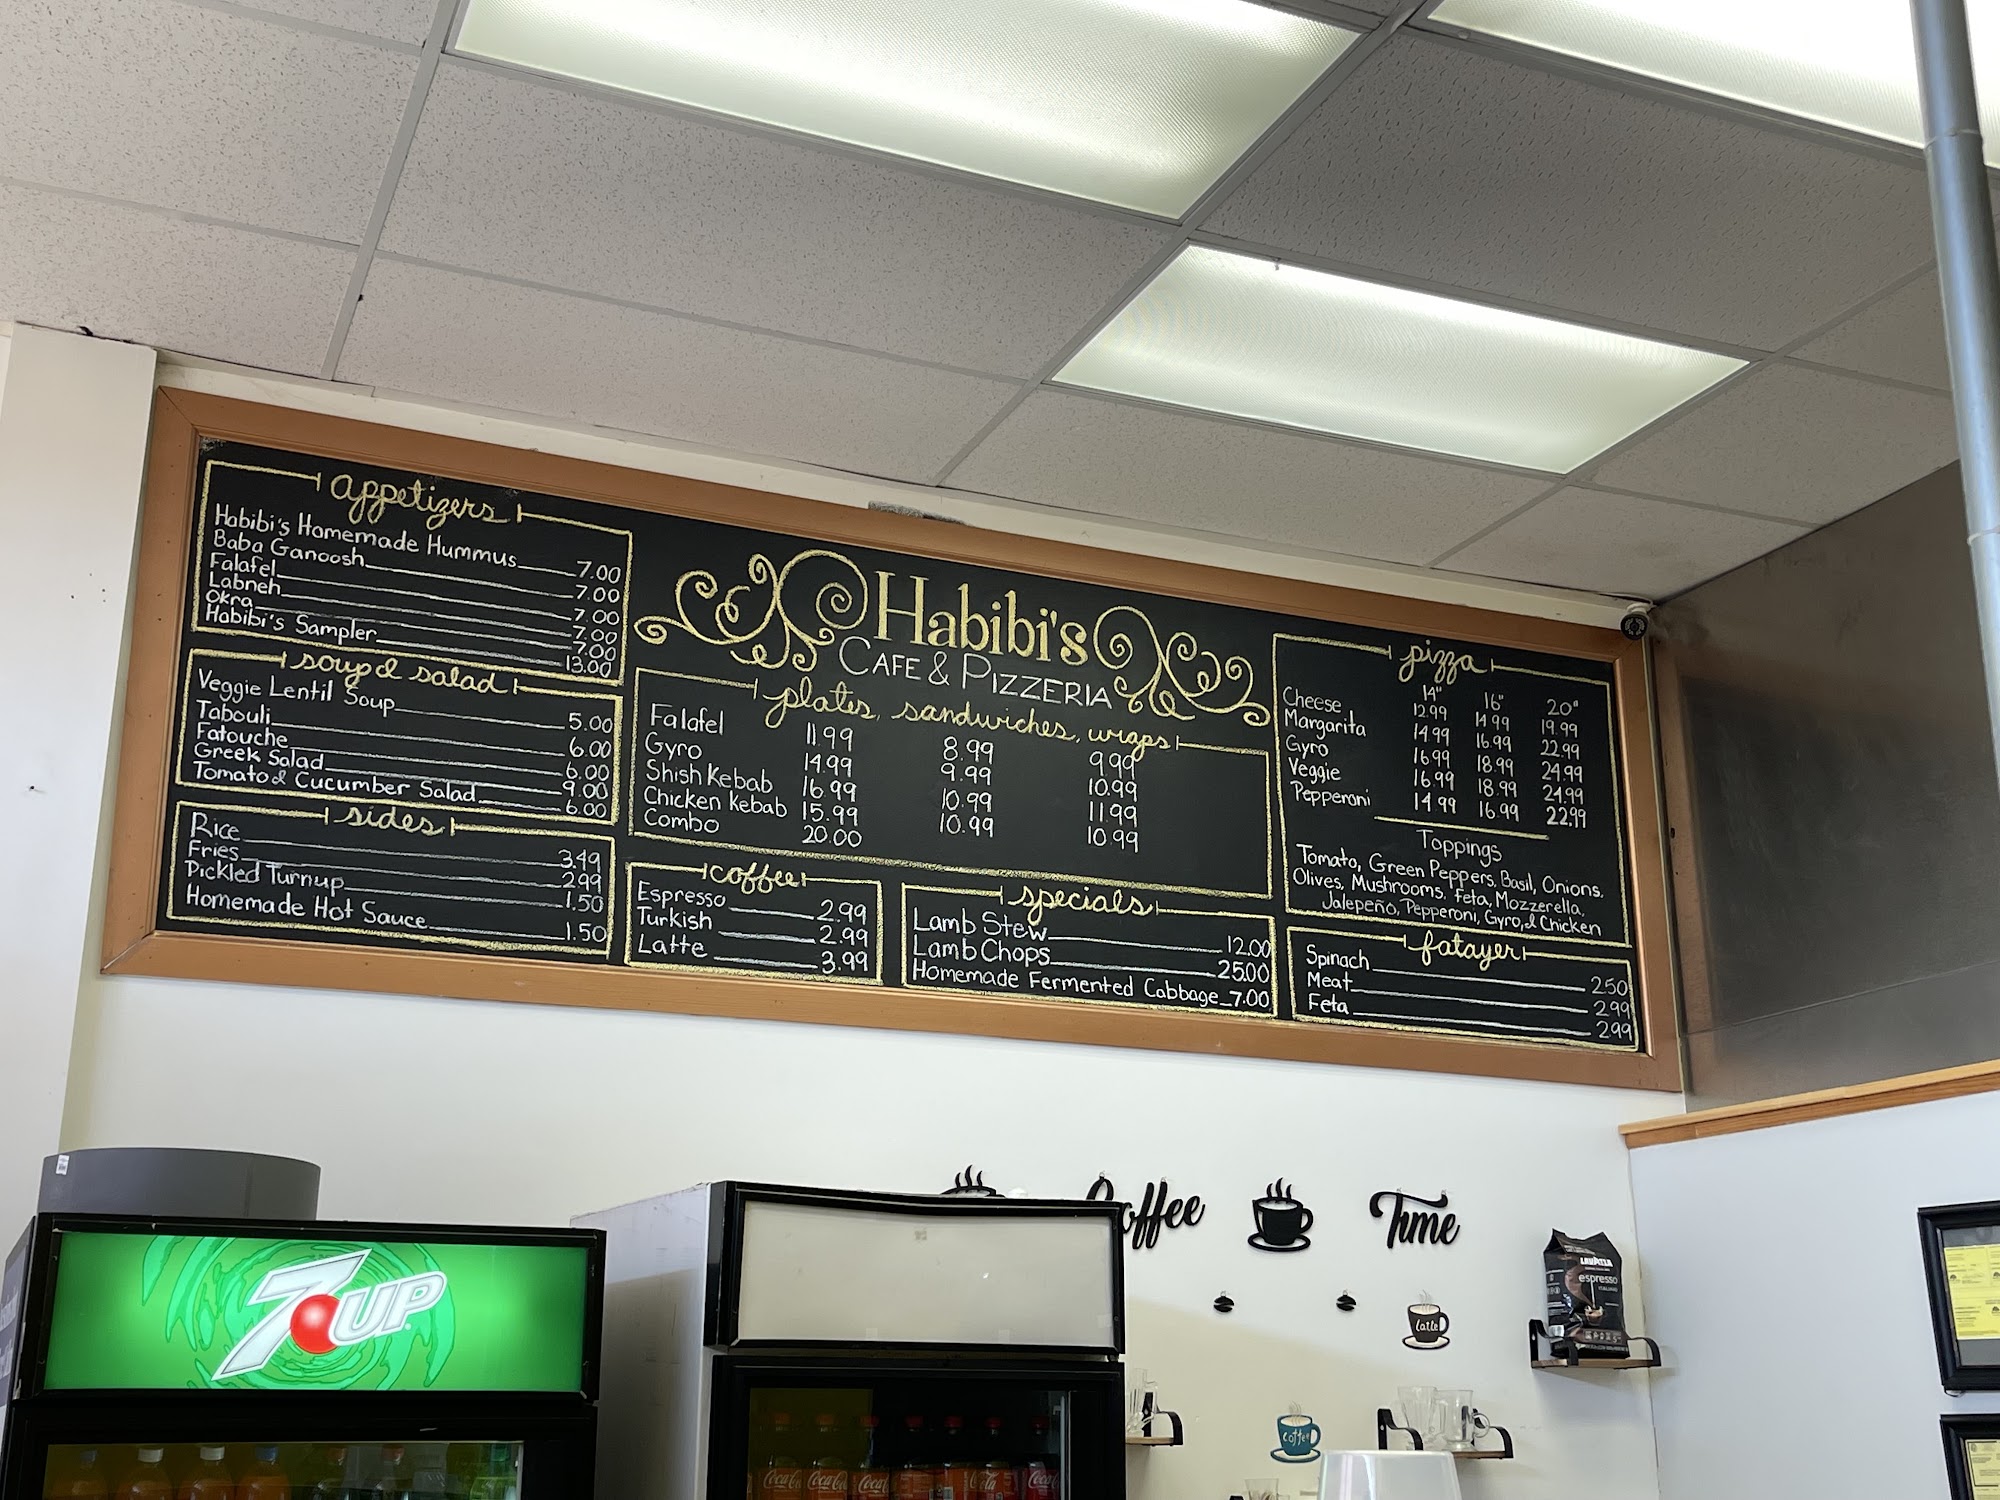 appetizers
Habibi's Homemade Hummus 7.00
Baba Ganoosh 7.00
Falafel 7.00
Labneh 7.00
Okra 7.00
Habibi's Sampler 13.00
soup & salad
Veggie Lentil Soup 5.00
Tabouli 6.00
Fatouche 6.00
Greek Salad 9.00
Tomato & Cucumber Salad 6.00
sides
Rice 3.49
Fries 2.99
Pickled Turnup 1.50
Homemade Hot Sauce 1.50
Habibi's
CAFE & PIZZERIA
plates, sandwiches, wraps
Falafel 11.99 8.99 9.99
Gyro 14.99 9.99 10.99
Shish Kebab 16.99 10.99 11.99
Chicken Kebab 15.99 10.99 10.99
Combo 20.00
coffee
Espresso 2.99
Turkish 2.99
Latte 3.99
specials
Lamb Stew 12.00
Lamb Chops 25.00
Homemade Fermented Cabbage 7.00
pizza
14" 16" 20"
Cheese 12.99 14.99 19.99
Margarita 14.99 16.99 22.99
Gyro 16.99 18.99 24.99
Veggie 16.99 18.99 24.99
Pepperoni 14.99 16.99 22.99
Toppings
Tomato, Green Peppers, Basil, Onions,
Olives, Mushrooms, Feta, Mozzerella,
Jalepeño, Pepperoni, Gyro, & Chicken
fatayer
Spinach 2.50
Meat 2.99
Feta 2.99
7UP
Coffee Time
LAVAZZA
espresso
latte
coffee
Coca-Cola